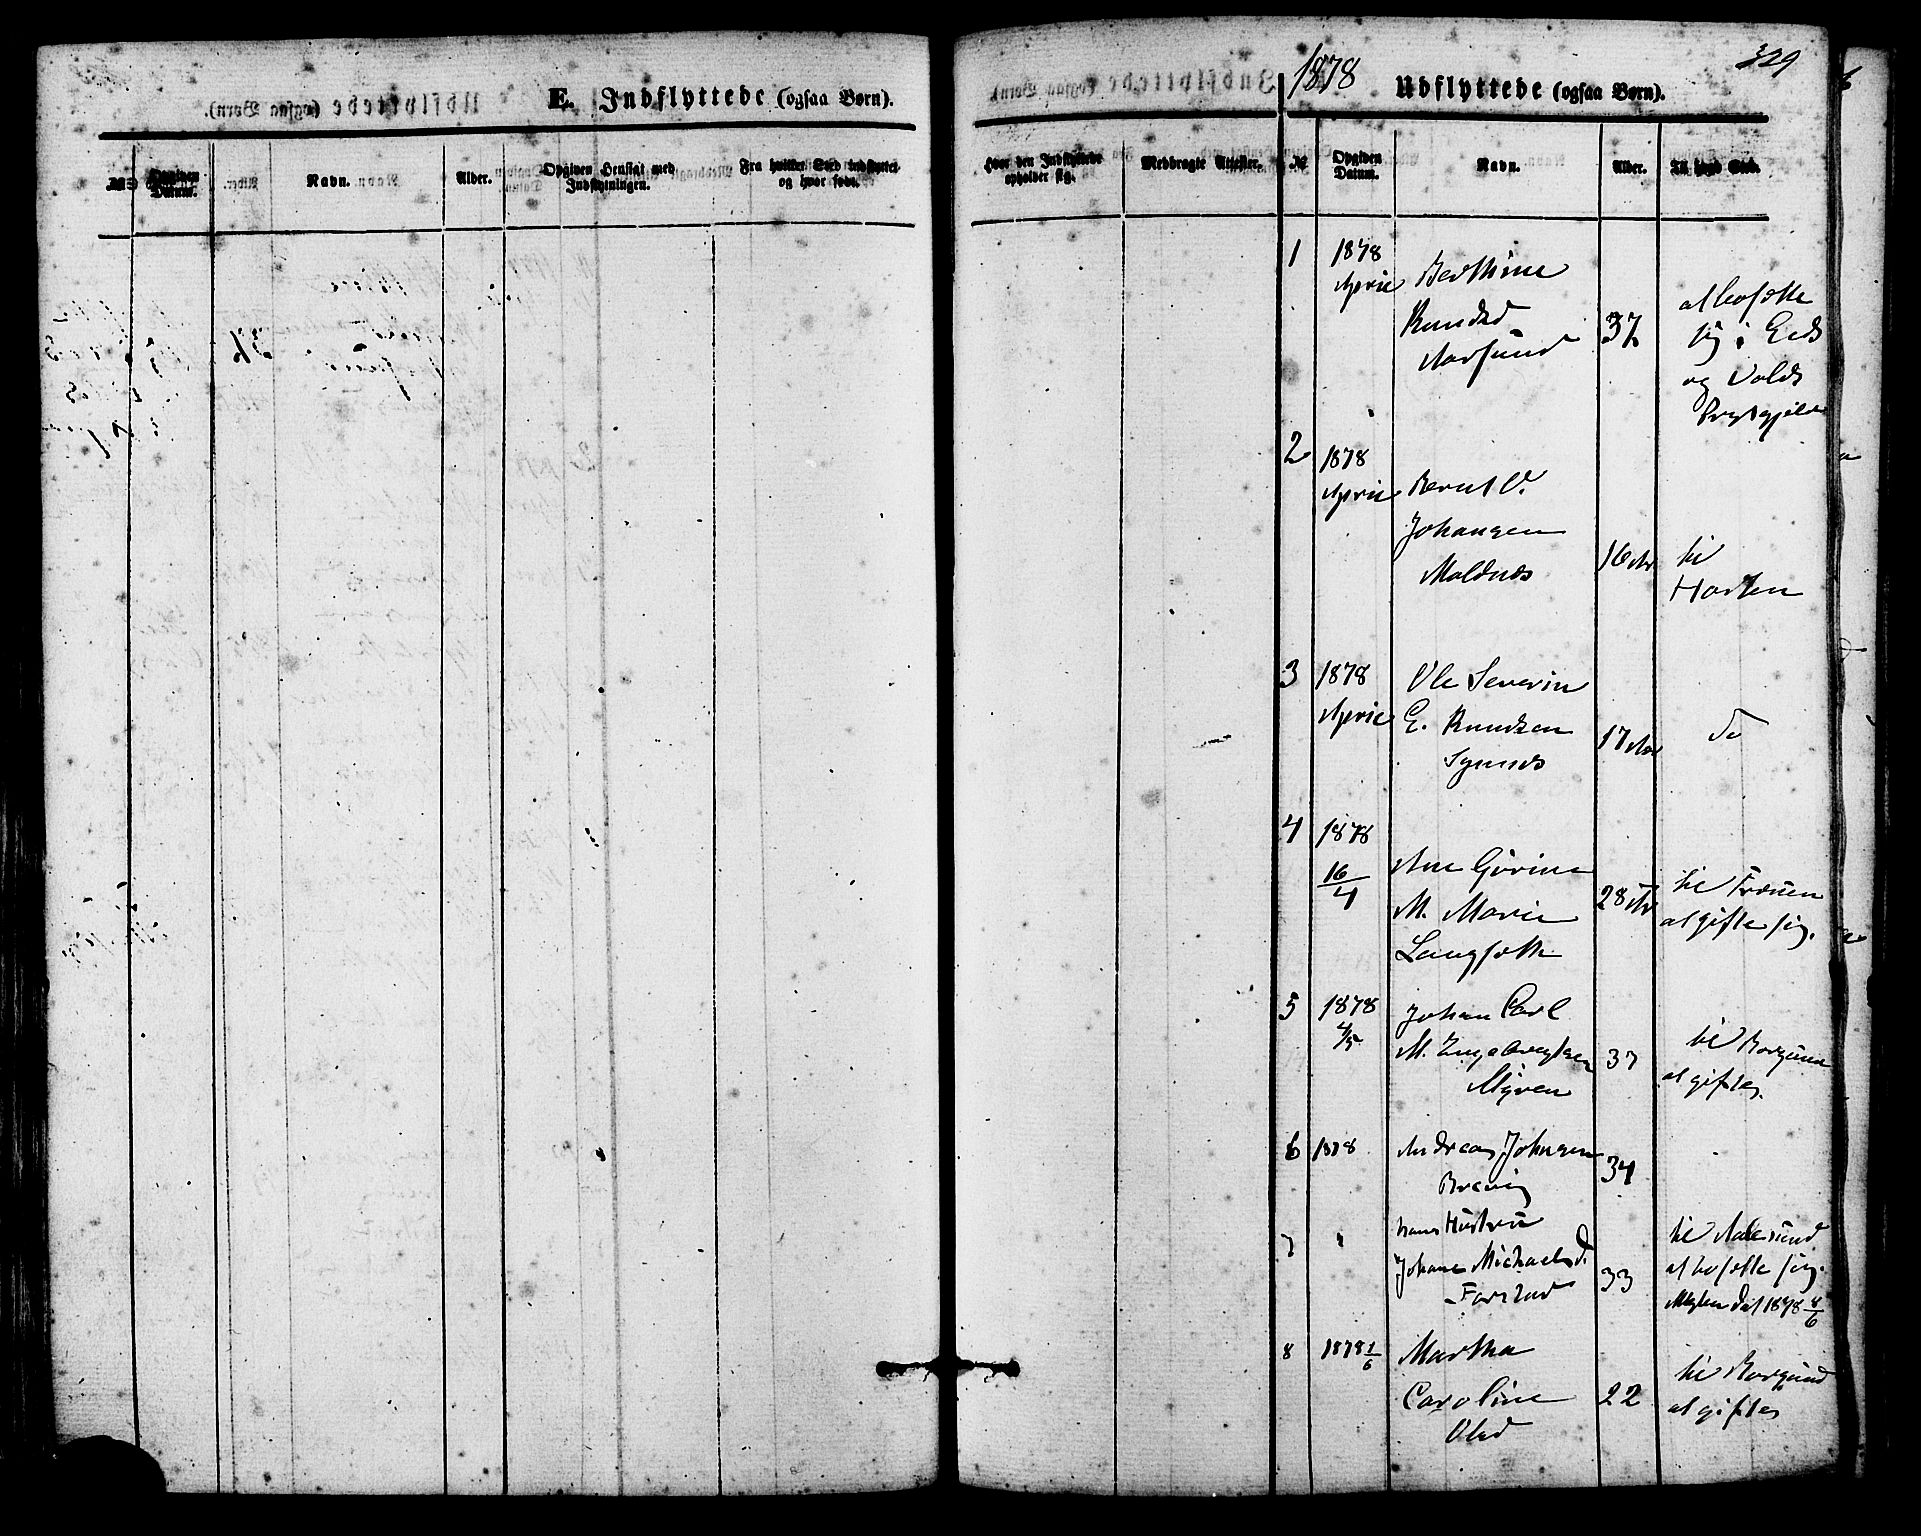 E. Indflyttede (ogsaa Børn).
No
Opgiven Datum.
Navn.
Alder.
Opgiven Hensigt med Indflytningen.
Fra hvilket Sted indflyttet og hvor født.
Hvor den Indflyttede opholder sig.
Medbragte Attester.
329
1878
Udflyttede (ogsaa Børn).
No
Opgiven Datum.
Navn.
Alder.
Til hvad Sted.
1 1878 April
Berthine
Knudsd
Aarsund
37
at bosætte
sig i Eids
og Volds
Prgstgjeld
2 1878 April
Bernt O.
Johansen
Moldnæs
16 Aar
til
Horten
3 1878 April
Ole Severin
E. Knudsen
Synnæs
17 Aar
do
4 1878 16/4
Ane Gurine
M. Marie
Langsæth
28 Ar
til Frænen
at gifte sig.
5 1878 4/5
Johan Carl
M. Engebregtsen
Myren
37
til Borgund
at giftes.
6 1878
Andreas Johnsen
34
7 "
hans Hustru
Johane Michaelsd.
Farstad
33
til Aalesund
at bosætte sig.
dat 1878 8/6
8 1878 1/6
Martha
Caroline
Olsd
22
til Borgund
at giftes